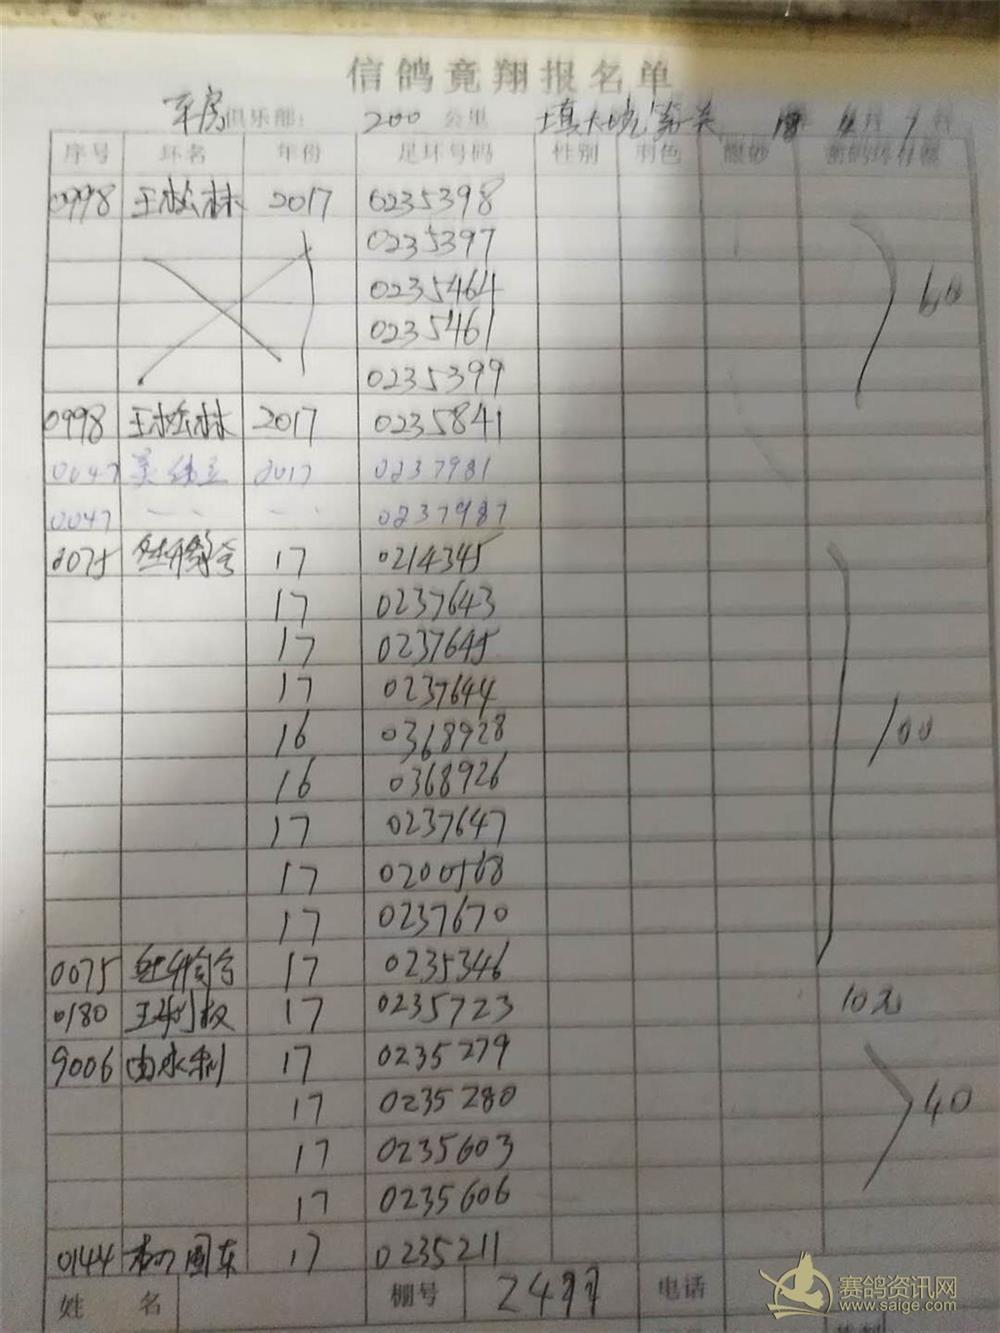 信鸽竟翔报名单
车房 俱乐部： 200 公里
序号 环名 年份 足环号码 性别 羽色 眼砂
0998 王松林 2017 0235398
0235397
0235464 60
0235461
0235399
0998 王松林 2017 0235841
0047 2017 0237981
0047 0237987
0075 17 0214345
17 0237643
17 0237645
17 0237644
16 0368928 100
16 0368926
17 0237647
17 0200568
17 0237670
0075 17 0235346
0180 17 0235723 10元
9006 由永利 17 0235279
17 0235280 40
17 0235603
17 0235606
0144 17 0235211
姓 名 棚号 电话
赛鸽资讯网
www.saige.com